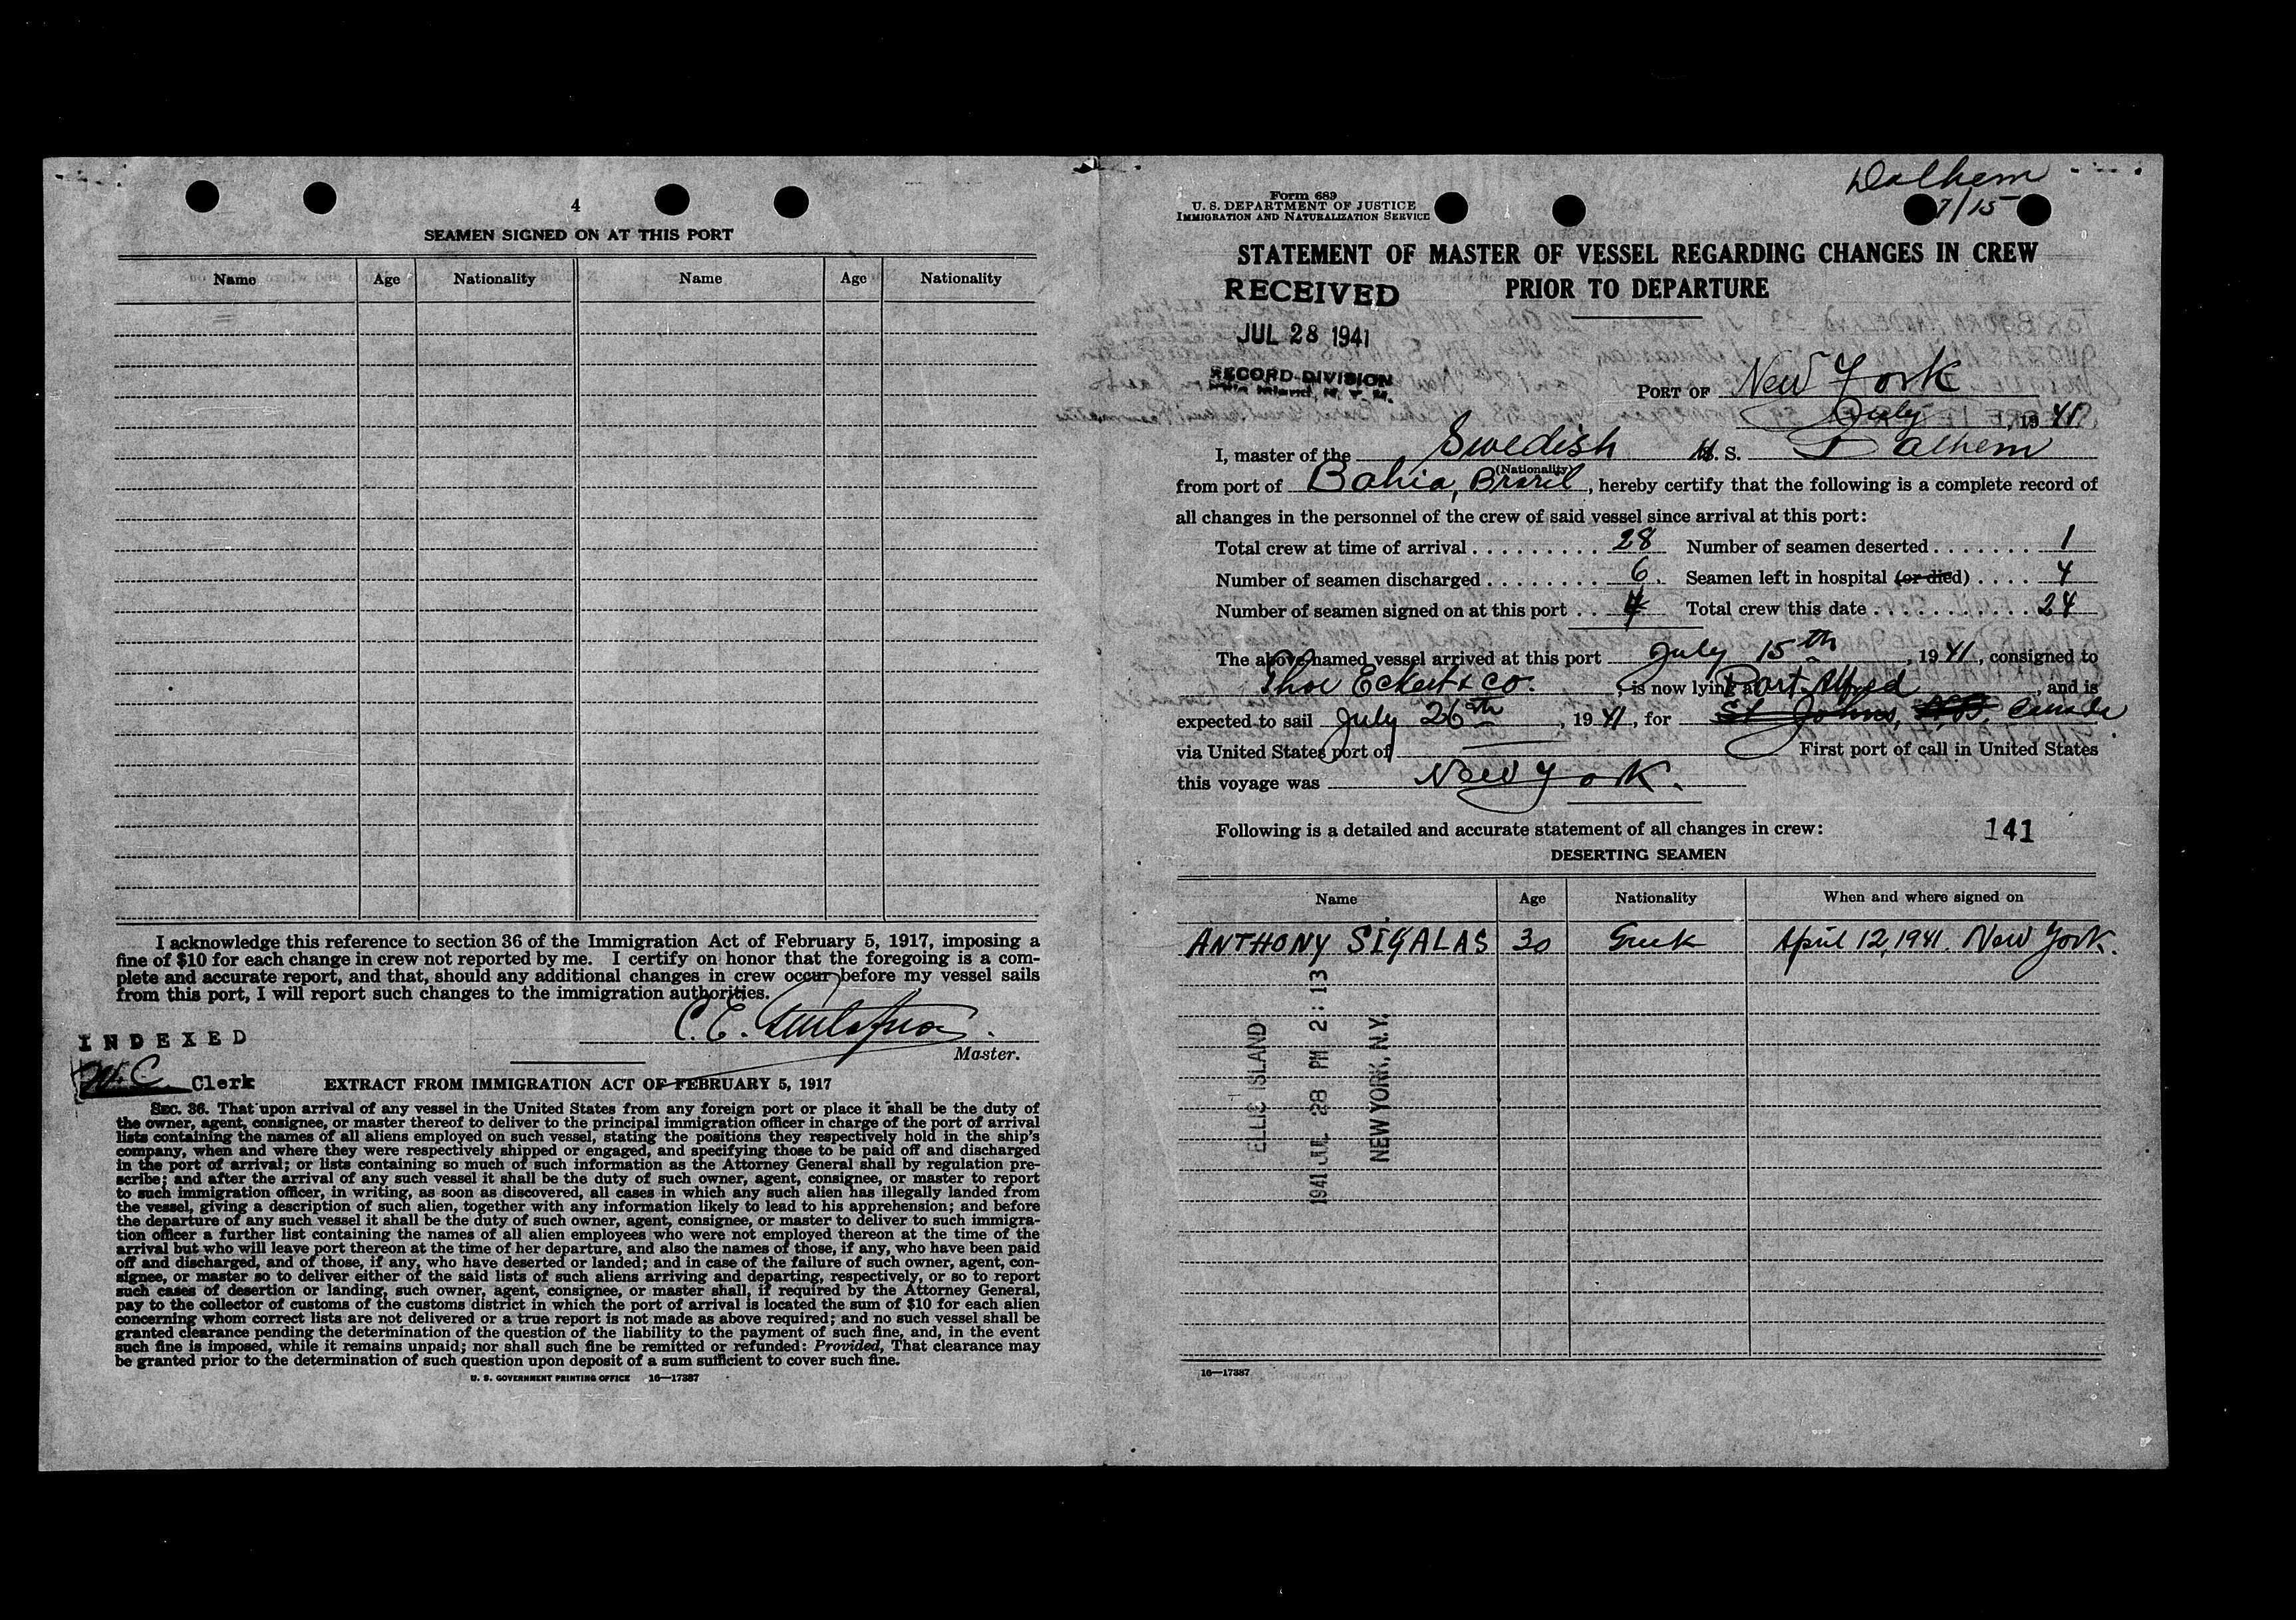 4
SEAMEN SIGNED ON AT THIS PORT
Name Age Nationality Name Age Nationality
I acknowledge this reference to section 36 of the Immigration Act of February 5, 1917, imposing a
fine of $10 for each change in crew not reported by me. I certify on honor that the foregoing is a com-
plete and accurate report, and that, should any additional changes in crew occur before my vessel sails
from this port, I will report such changes to the immigration authorities.
C. E.
Master.
INDEXED
Clerk
EXTRACT FROM IMMIGRATION ACT OF FEBRUARY 5, 1917
SEC. 36. That upon arrival of any vessel in the United States from any foreign port or place it shall be the duty of
the owner, agent, consignee, or master thereof to deliver to the principal immigration officer in charge of the port of arrival
lists containing the names of all aliens employed on such vessel, stating the positions they respectively hold in the ship's
company, when and where they were respectively shipped or engaged, and specifying those to be paid off and discharged
in the port of arrival; or lists containing so much of such information as the Attorney General shall by regulation pre-
scribe; and after the arrival of any such vessel it shall be the duty of such owner, agent, consignee, or master to report
to such immigration officer, in writing, as soon as discovered, all cases in which any such alien has illegally landed from
the vessel, giving a description of such alien, together with any information likely to lead to his apprehension; and before
the departure of any such vessel it shall be the duty of such owner, agent, consignee, or master to deliver to such immigra-
tion officer a further list containing the names of all alien employees who were not employed thereon at the time of the
arrival but who will leave port thereon at the time of her departure, and also the names of those, if any, who have been paid
off and discharged, and of those, if any, who have deserted or landed; and in case of the failure of such owner, agent, con-
signee, or master so to deliver either of the said lists of such aliens arriving and departing, respectively, or so to report
such cases of desertion or landing, such owner, agent, consignee, or master shall, if required by the Attorney General,
pay to the collector of customs of the customs district in which the port of arrival is located the sum of $10 for each alien
concerning whom correct lists are not delivered or a true report is not made as above required; and no such vessel shall be
granted clearance pending the determination of the question of the liability to the payment of such fine, and, in the event
such fine is imposed, while it remains unpaid; nor shall such fine be remitted or refunded: Provided, That clearance may
be granted prior to the determination of such question upon deposit of a sum sufficient to cover such fine.
U. S. GOVERNMENT PRINTING OFFICE 16—17387
Dalhem
7/15
Form 689
U. S. DEPARTMENT OF JUSTICE
IMMIGRATION AND NATURALIZATION SERVICE
STATEMENT OF MASTER OF VESSEL REGARDING CHANGES IN CREW
PRIOR TO DEPARTURE
RECEIVED
JUL 28 1941
RECORD DIVISION
PORT OF New York
July, 1941
I, master of the Swedish M. S. Dalhem
(Nationality)
from port of Bahia, Brazil, hereby certify that the following is a complete record of
all changes in the personnel of the crew of said vessel since arrival at this port:
Total crew at time of arrival . . . . . . . . . 28 Number of seamen deserted . . . . . . . 1
Number of seamen discharged . . . . . . . . 6. Seamen left in hospital (or died) . . . . 4
Number of seamen signed on at this port . . Total crew this date . . . . . . . . . . . 24
The above-named vessel arrived at this port July 15th, 1941, consigned to
Thor Eckert & Co., is now lying at Port Alfred, and is
expected to sail July 26th, 1941, for St Johns, N.B. Canada
via United States port of First port of call in United States
this voyage was New York.
Following is a detailed and accurate statement of all changes in crew: 141
DESERTING SEAMEN
Name Age Nationality When and where signed on
ANTHONY SIGALAS 30 Greek April 12, 1941. New York.
ELLIS ISLAND
1941 JUL 28 PM 2:13
NEW YORK, N.Y.
16—17387